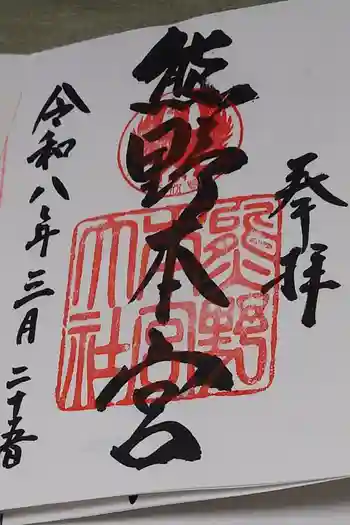 奉拝
熊野本宮
令和八年三月二十五日
熊野本宮大社